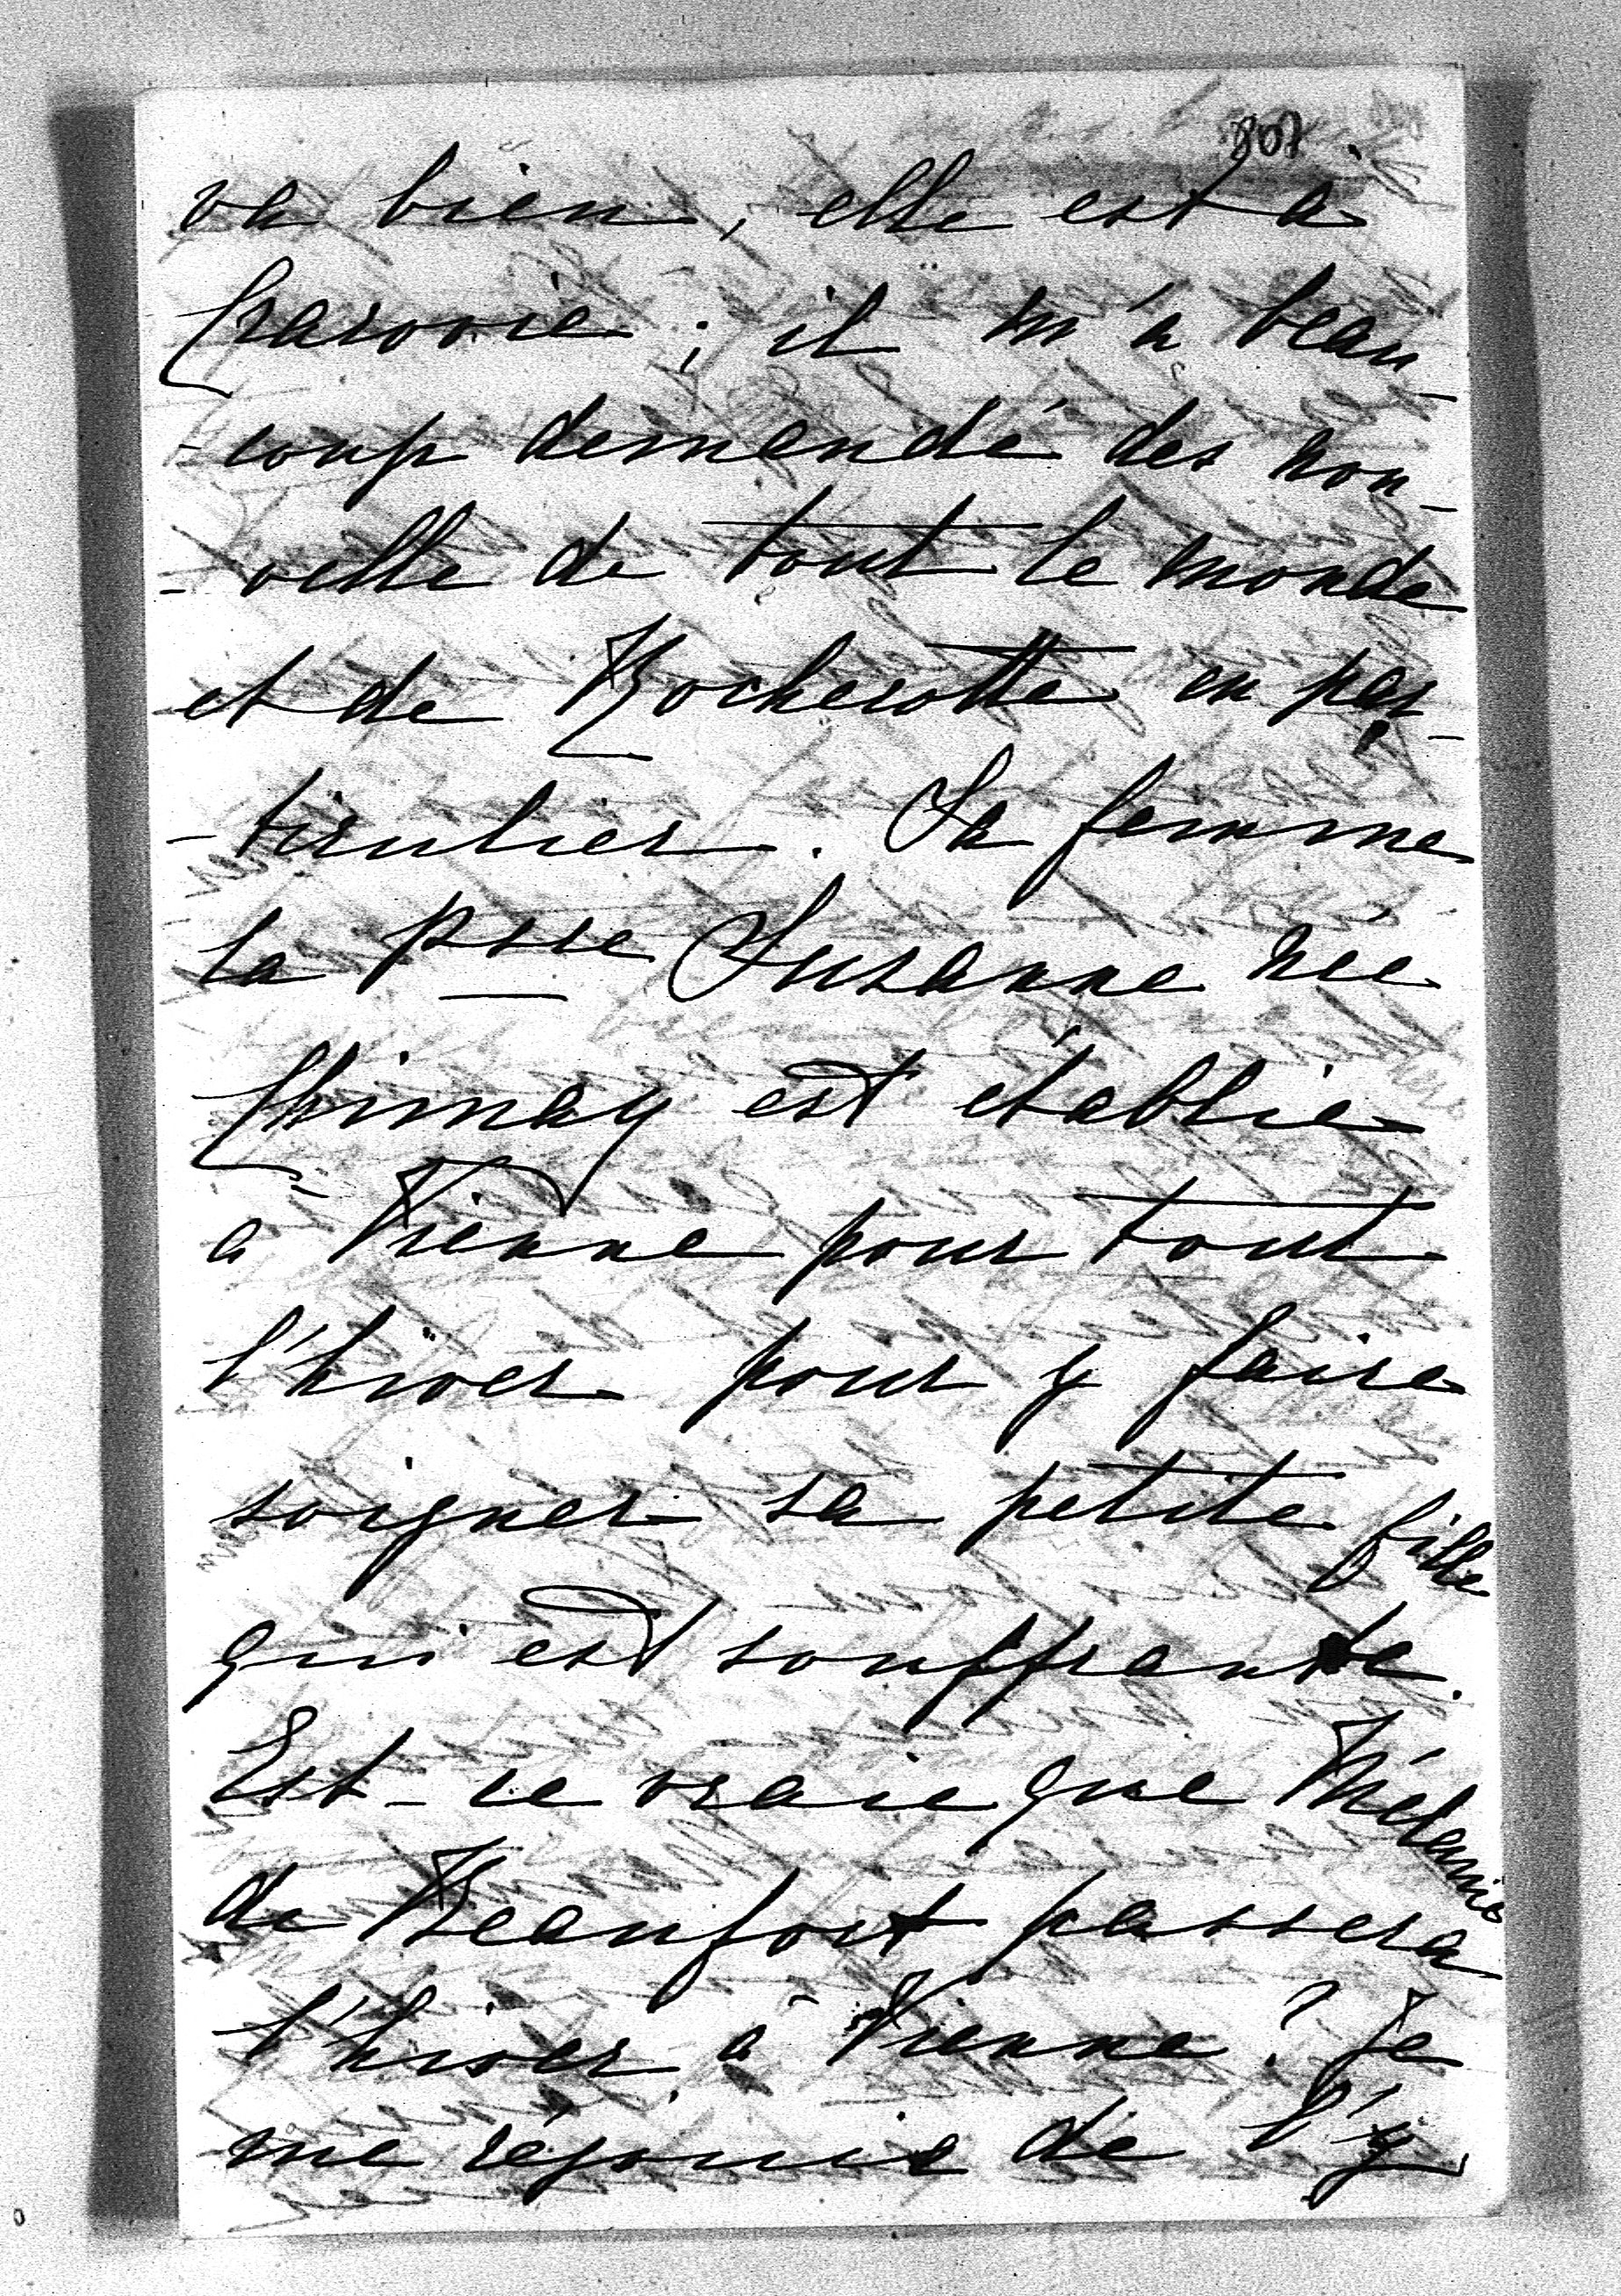 807
va bien, elle est à
Cracovie; il m'a beau-
-coup demandé des nou-
-velle de tout le monde
et de Rocherotte en par-
-ticulier. Sa femme
la Psse Susanne née
Chimay est établie
à Vienne pour tout
l'hiver pour y faire
soigner sa petite fille
qui est souffrante.
Est-ce vraie que Mélanie
de Beaufort passera
l'hiver à Vienne? Je
me réjouis de l'y